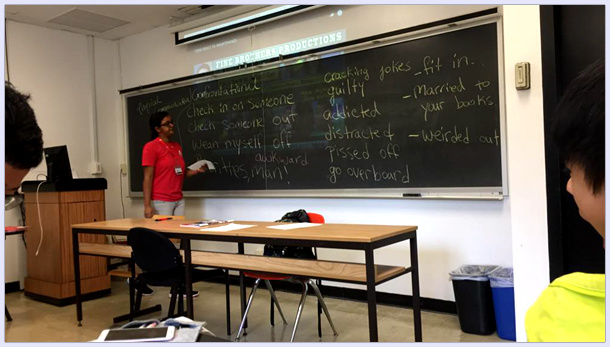 FINE BROTHERS PRODUCTIONS
Confrontational
check in on someone
check someone out
wean myself off
awkward
ties, man!
cracking jokes
guilty
addicted
distracted
Pissed off
go overboard
- fit in...
- married to
your books
- weirded out